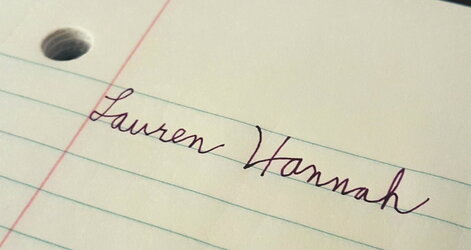 Lauren Hannah